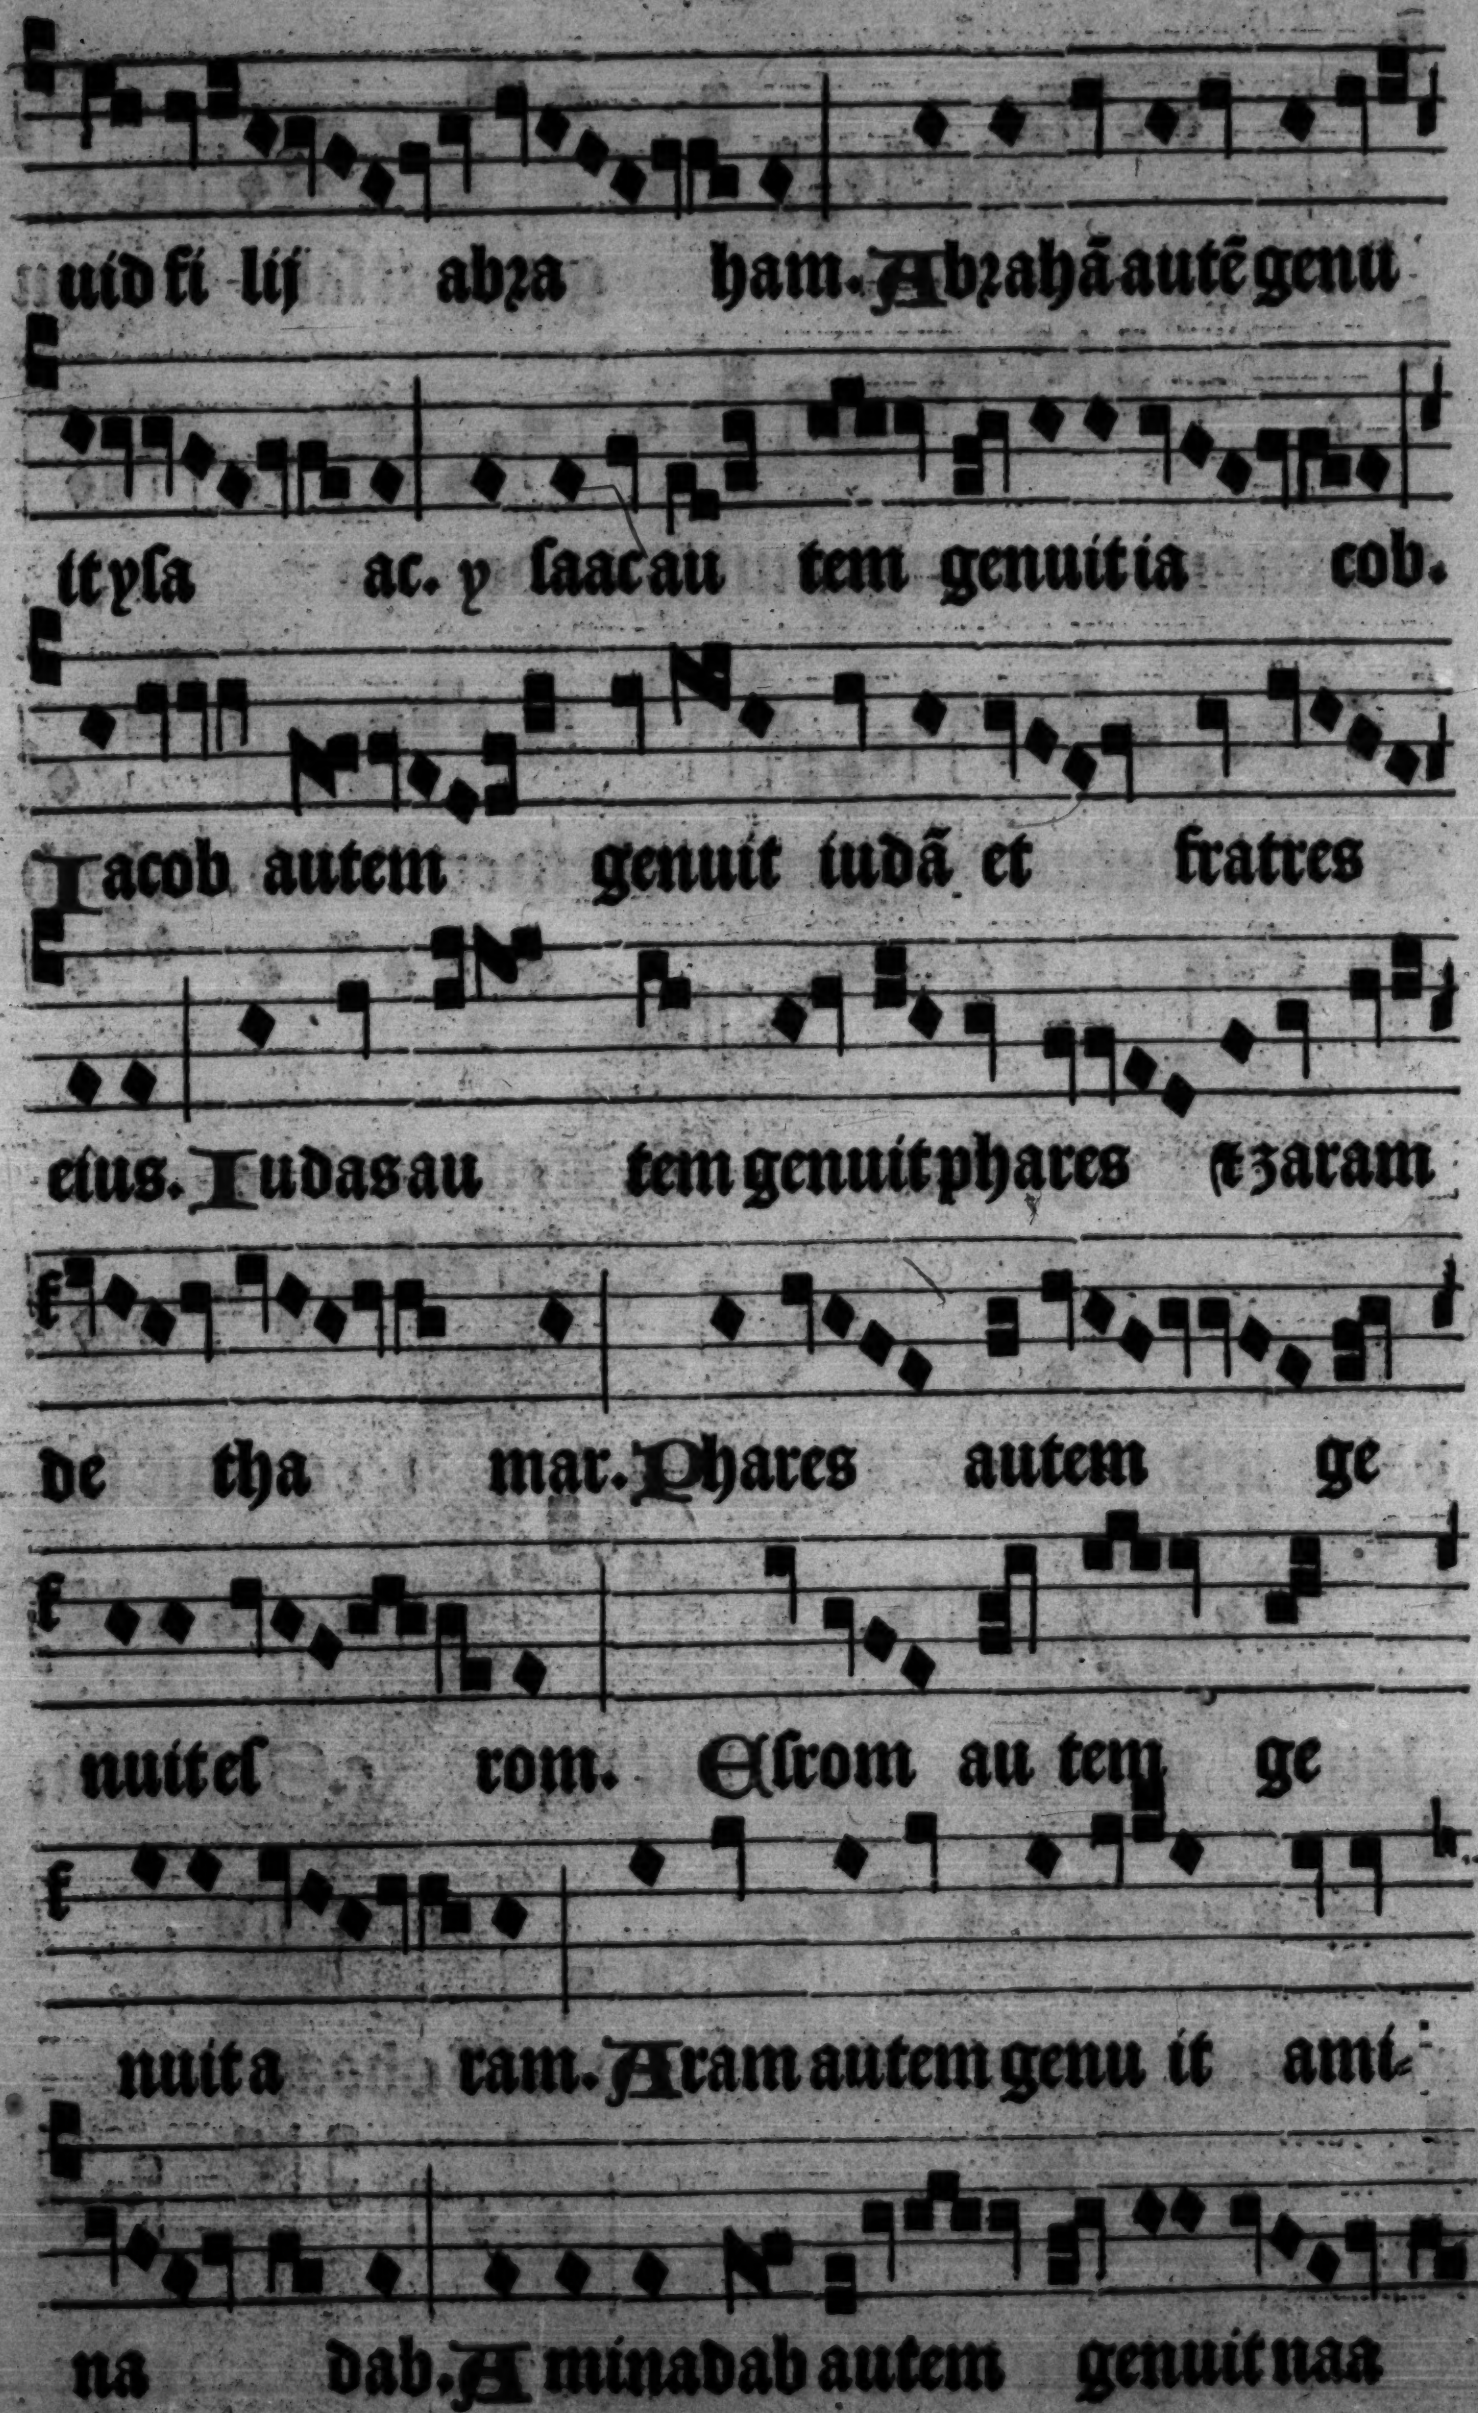 uid fi lij abꝛa ham. Abꝛahā autē genu
it yſa ac. y ſaac au tem genuit ia cob.
Iacob autem genuit iudā et fratres
eius. Iudas au tem genuit phares ⁊ zaram
de tha mar. Phares autem ge
nuit eſ rom. Eſrom au tem ge
nuit a ram. Aram autem genu it ami⸗
na dab. A minadab autem genuit naa